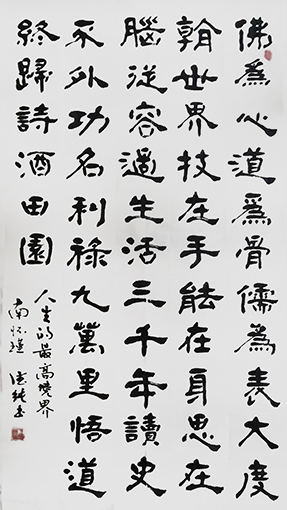 佛為心道為骨儒為表大度
看世界技在手能在身思在
腦從容過生活三千年讀史
不外功名利祿九萬里悟道
終歸詩酒田園
人生的最高境界
南怀瑾